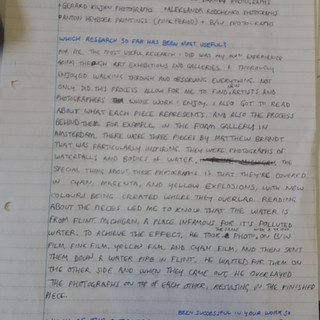 + GERARD KILDAY PHOTOGRAPHS ALEKSANDRA ROZENBERG PHOTOGRAPHS
WHICH RESEARCH SO FAR HAS BEEN MOST USEFUL?
FOR ME THE MOST USEFUL RESEARCH I DID WAS MY OWN EXPERIENCE
GOING THROUGH ART EXHIBITIONS AND GALLERIES. I THOROUGHLY
ENJOYED WALKING THROUGH AND OBSERVING EVERYTHING. NOT
ONLY DID THIS PROCESS ALLOW FOR ME TO FIND ARTISTS AND
PHOTOGRAPHERS WORK I ENJOY, I ALSO GOT TO READ
ABOUT WHAT EACH PIECE REPRESENTS AND ALSO THE PROCESS
BEHIND IT. FOR EXAMPLE, IN THE FOAM GALLERY IN
AMSTERDAM, THERE WERE THREE PIECES BY MATTHEW BRANDT
THAT WAS PARTICULARLY INSPIRING. THEY WERE PHOTOGRAPHS OF
WATERFALLS AND BODIES OF WATER, THE
SPECIAL THING ABOUT THESE PHOTOGRAPHS IS THAT THEY'RE COVERED
IN CYAN, MAGENTA, AND YELLOW EXPLOSIONS, WITH NEW
COLOURS BEING CREATED WHERE THEY OVERLAP. READING
ABOUT THE PIECES LED ME TO KNOW THAT THE WATER IS
FROM FLINT, MICHIGAN, A PLACE INFAMOUS FOR IT'S POLLUTED
WATER. TO ACHIEVE THE EFFECT, HE TOOK A PHOTO, ON B/W
FILM, PINK FILM, YELLOW FILM AND CYAN FILM, AND THEN SENT
THEM DOWN A WATER PIPE IN FLINT. HE WAITED FOR THEM ON
THE OTHER SIDE AND WHEN THEY CAME OUT HE OVERLAYED
THE PHOTOGRAPHS ON TOP OF EACH OTHER, RESULTING IN THE FINISHED
PIECE.
BEEN SUCCESSFUL IN YOUR WORK